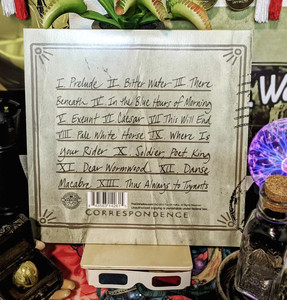 I Prelude II Bitter Water III There
Beneath IV In the Blue Hours of Morning
V Exeunt VI Caesar VII This Will End
VIII Pale White Horse IX Where Is
your Rider X Soldier, Poet, King
XI Dear Wormwood XII Danse
Macabre XIII Thus Always to Tyrants
CORRESPONDENCE
W